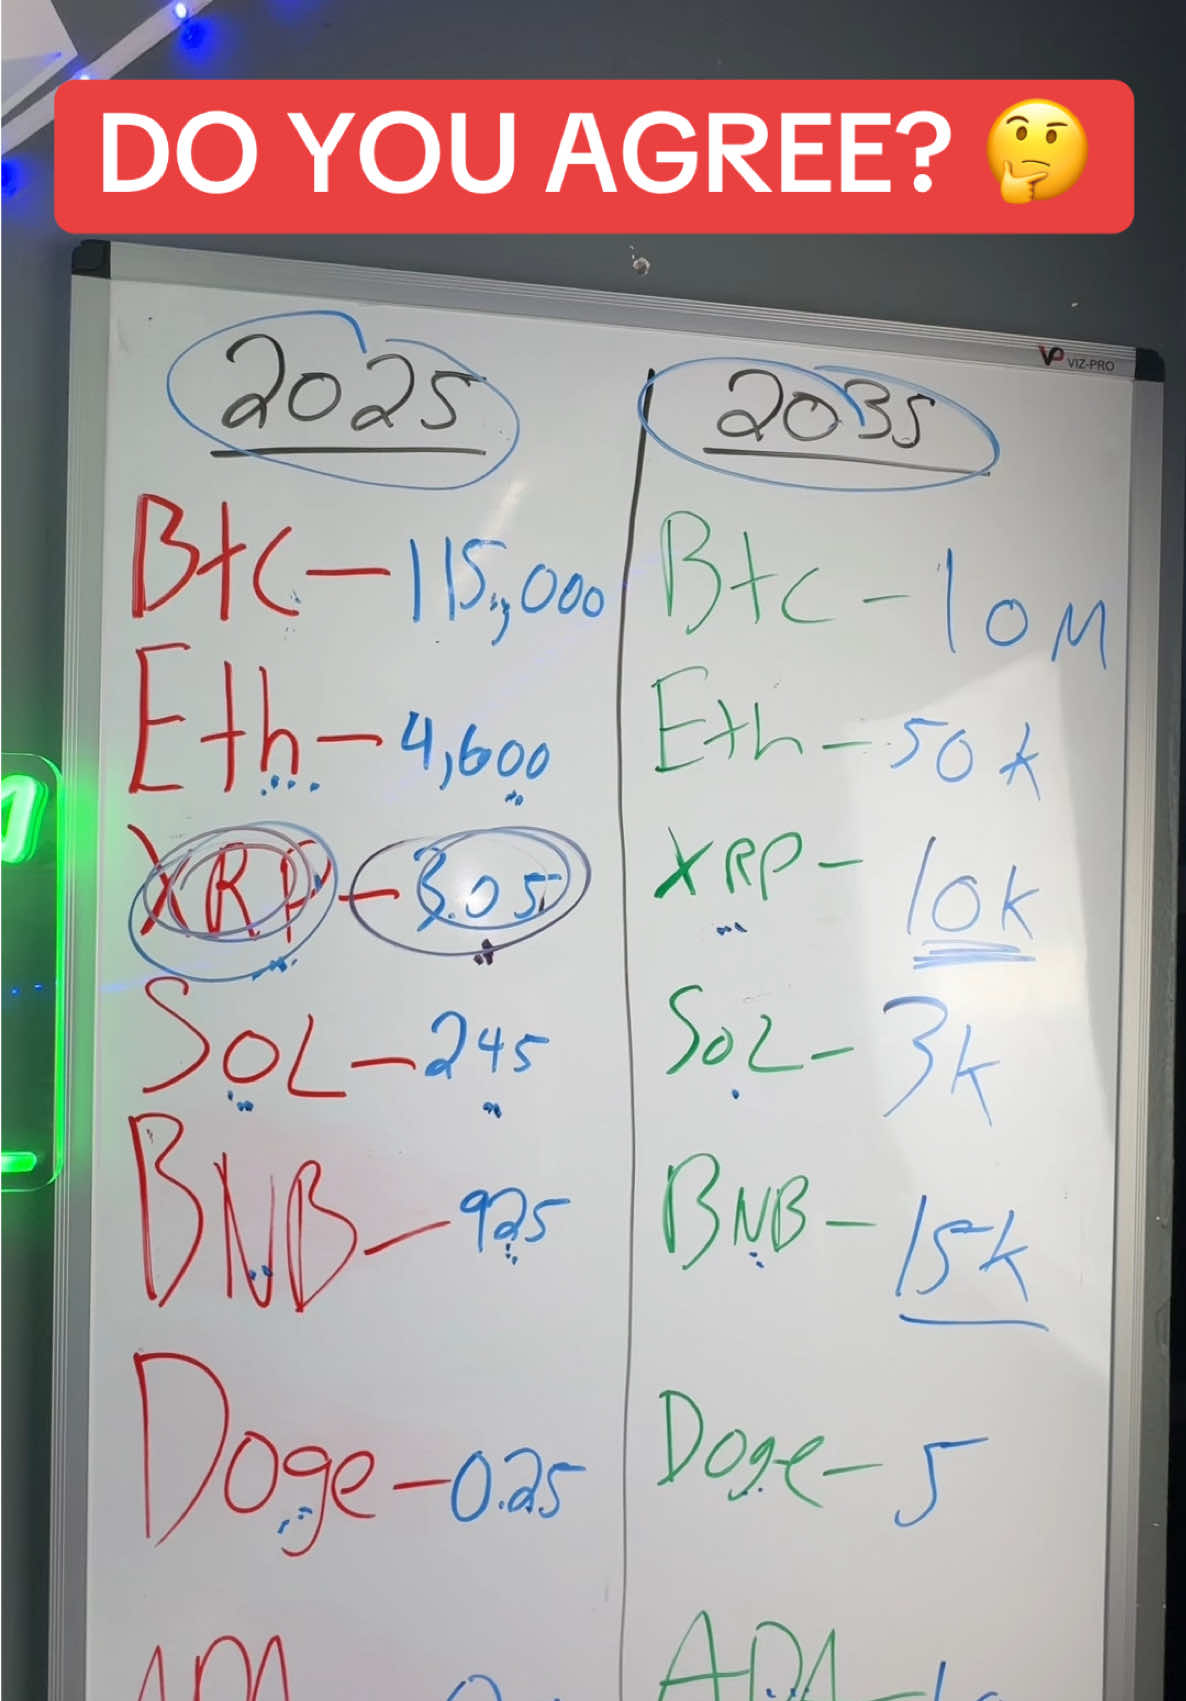 DO YOU AGREE? 🤔
VP VIZ-PRO
2025
2035
Btc - 115,000
Btc - 10M
Eth - 4,600
Eth - 50k
XRP - 3.05
XRP - 10k
SOL - 245
SOL - 3k
BNB - 925
BNB - 15k
Doge - 0.25
Doge - 5
ADA
ADA -